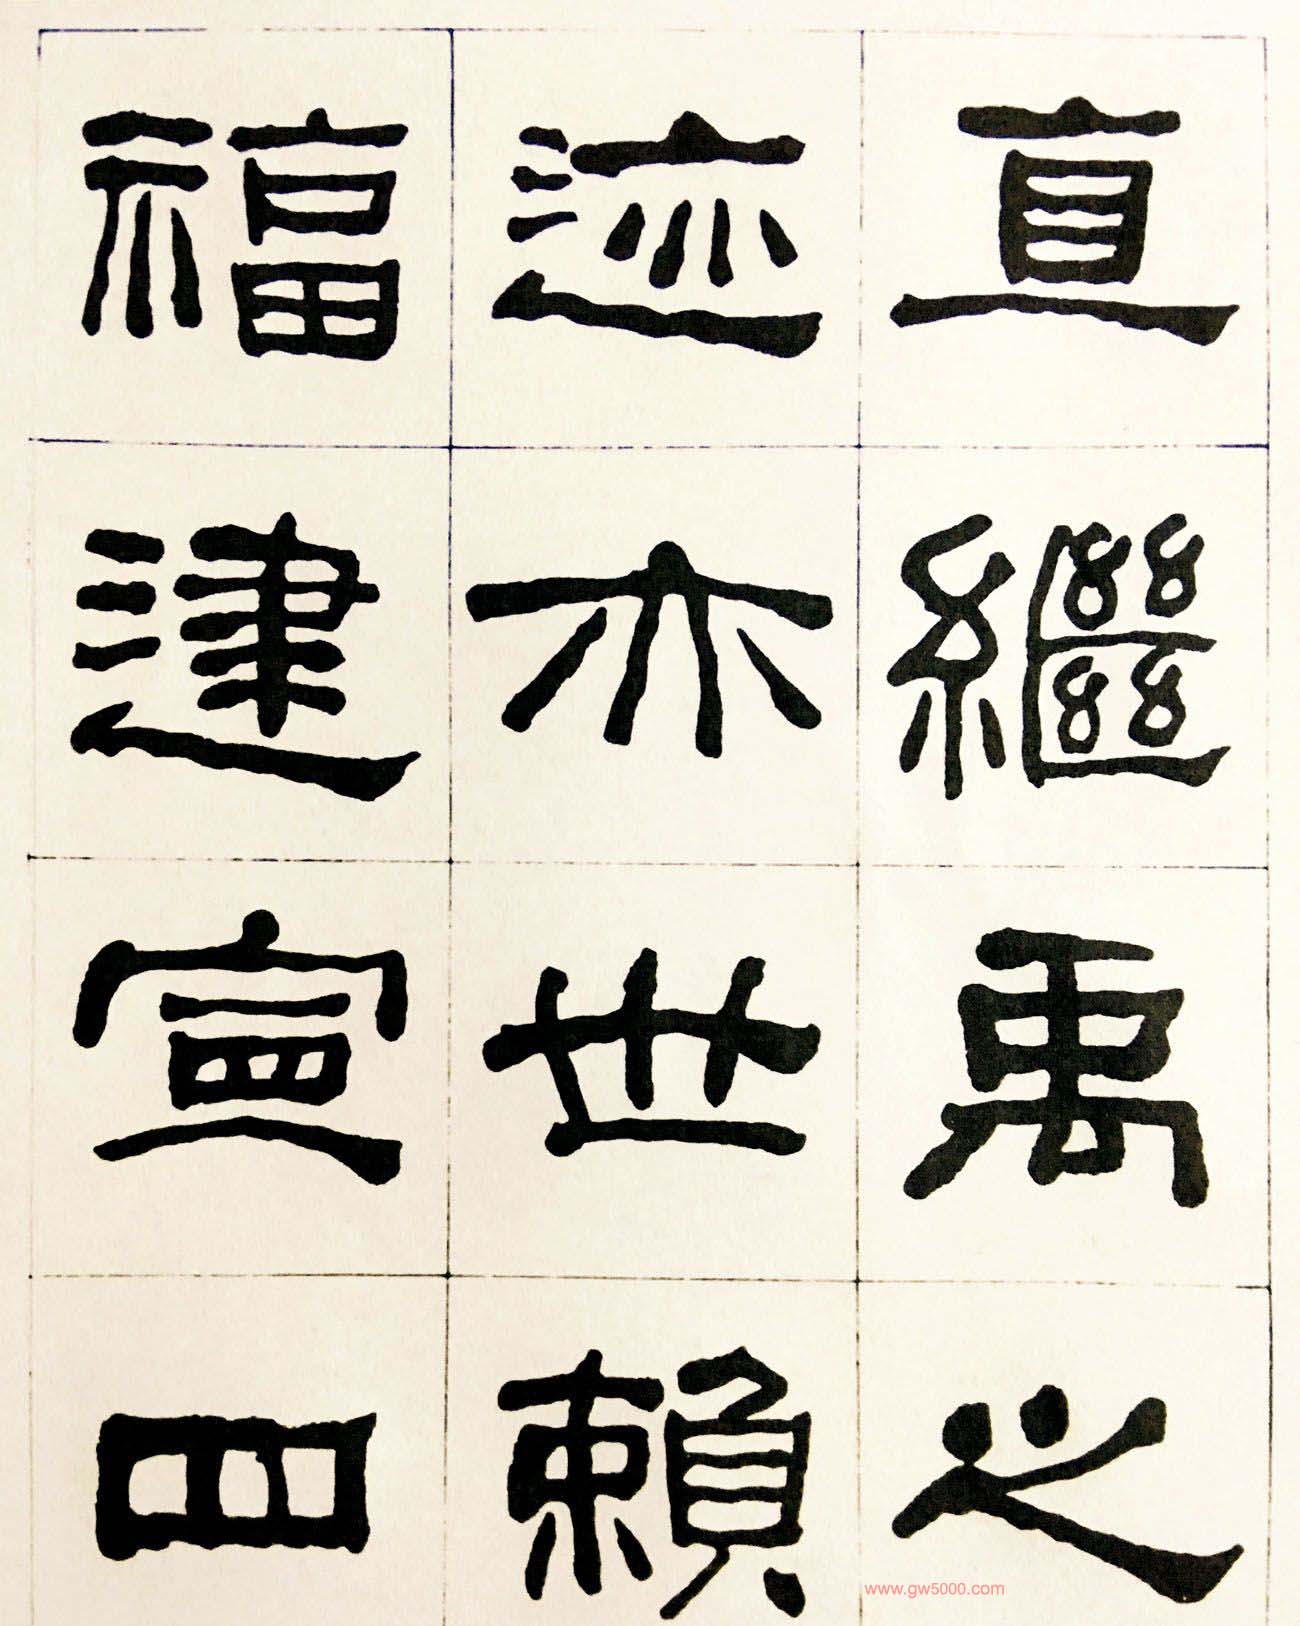 直繼禹之
迹亦世賴
福建寧四
www.gw5000.com